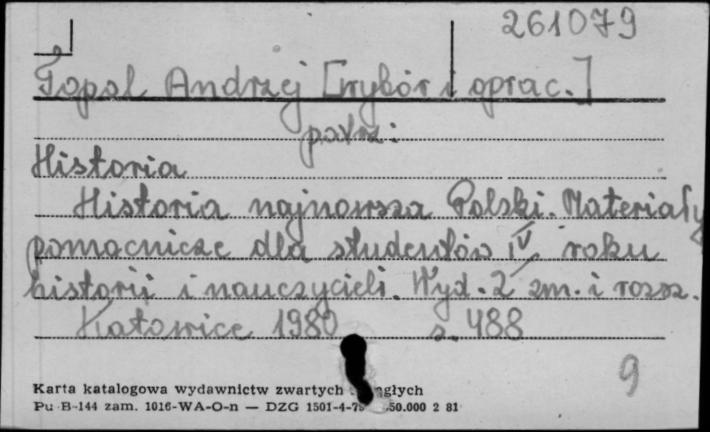 261079
Topol Andrzej [wybór i oprac.]
patrz:
Historia
Historia najnowsza Polski. Materiały
pomocnicze dla studentów IV roku
historii i nauczycieli. Wyd. 2 zm. i rozsz.
Katowice 1980 s. 488
9
Karta katalogowa wydawnictw zwartych
Pu B-144 zam. 1016-WA-O-n — DZG 1501-4-79 50.000 2 81